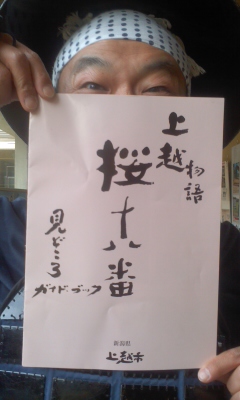 上越物語
桜十八番
見どころ
ガイドブック
新潟県
上越市